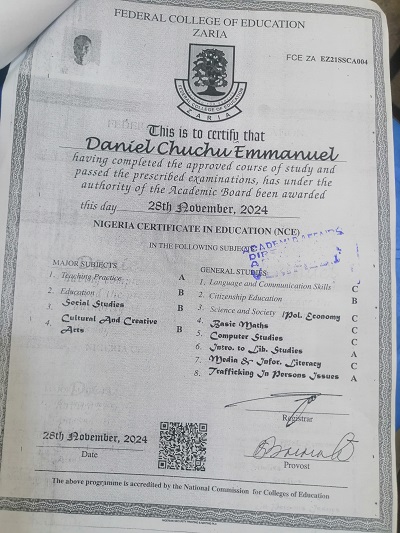 FEDERAL COLLEGE OF EDUCATION
ZARIA
FCE ZA EZ21SSCA004
FEDERAL COLLEGE OF EDUCATION
ZARIA
This is to certify that
Daniel Chuchu Emmanuel
having completed the approved course of study and
passed the prescribed examinations, has under the
authority of the Academic Board been awarded
this day 28th November, 2024
NIGERIA CERTIFICATE IN EDUCATION (NCE)
IN THE FOLLOWING SUBJECTS
ACADEMIC AFFAIRS
MAJOR SUBJECTS
1. Teaching Practice A
2. Education B
3. Social Studies B
4. Cultural And Creative
Arts B
GENERAL STUDIES
1. Language and Communication Skills C
2. Citizenship Education B
3. Science and Society /Pol. Economy C
4. Basic Maths C
5. Computer Studies C
6. Intro. to Lib. Studies A
7. Media & Infor. Literacy C
8. Trafficking In Persons Issues A
Registrar
28th November, 2024
Date
Provost
The above programme is accredited by the National Commission for Colleges of Education